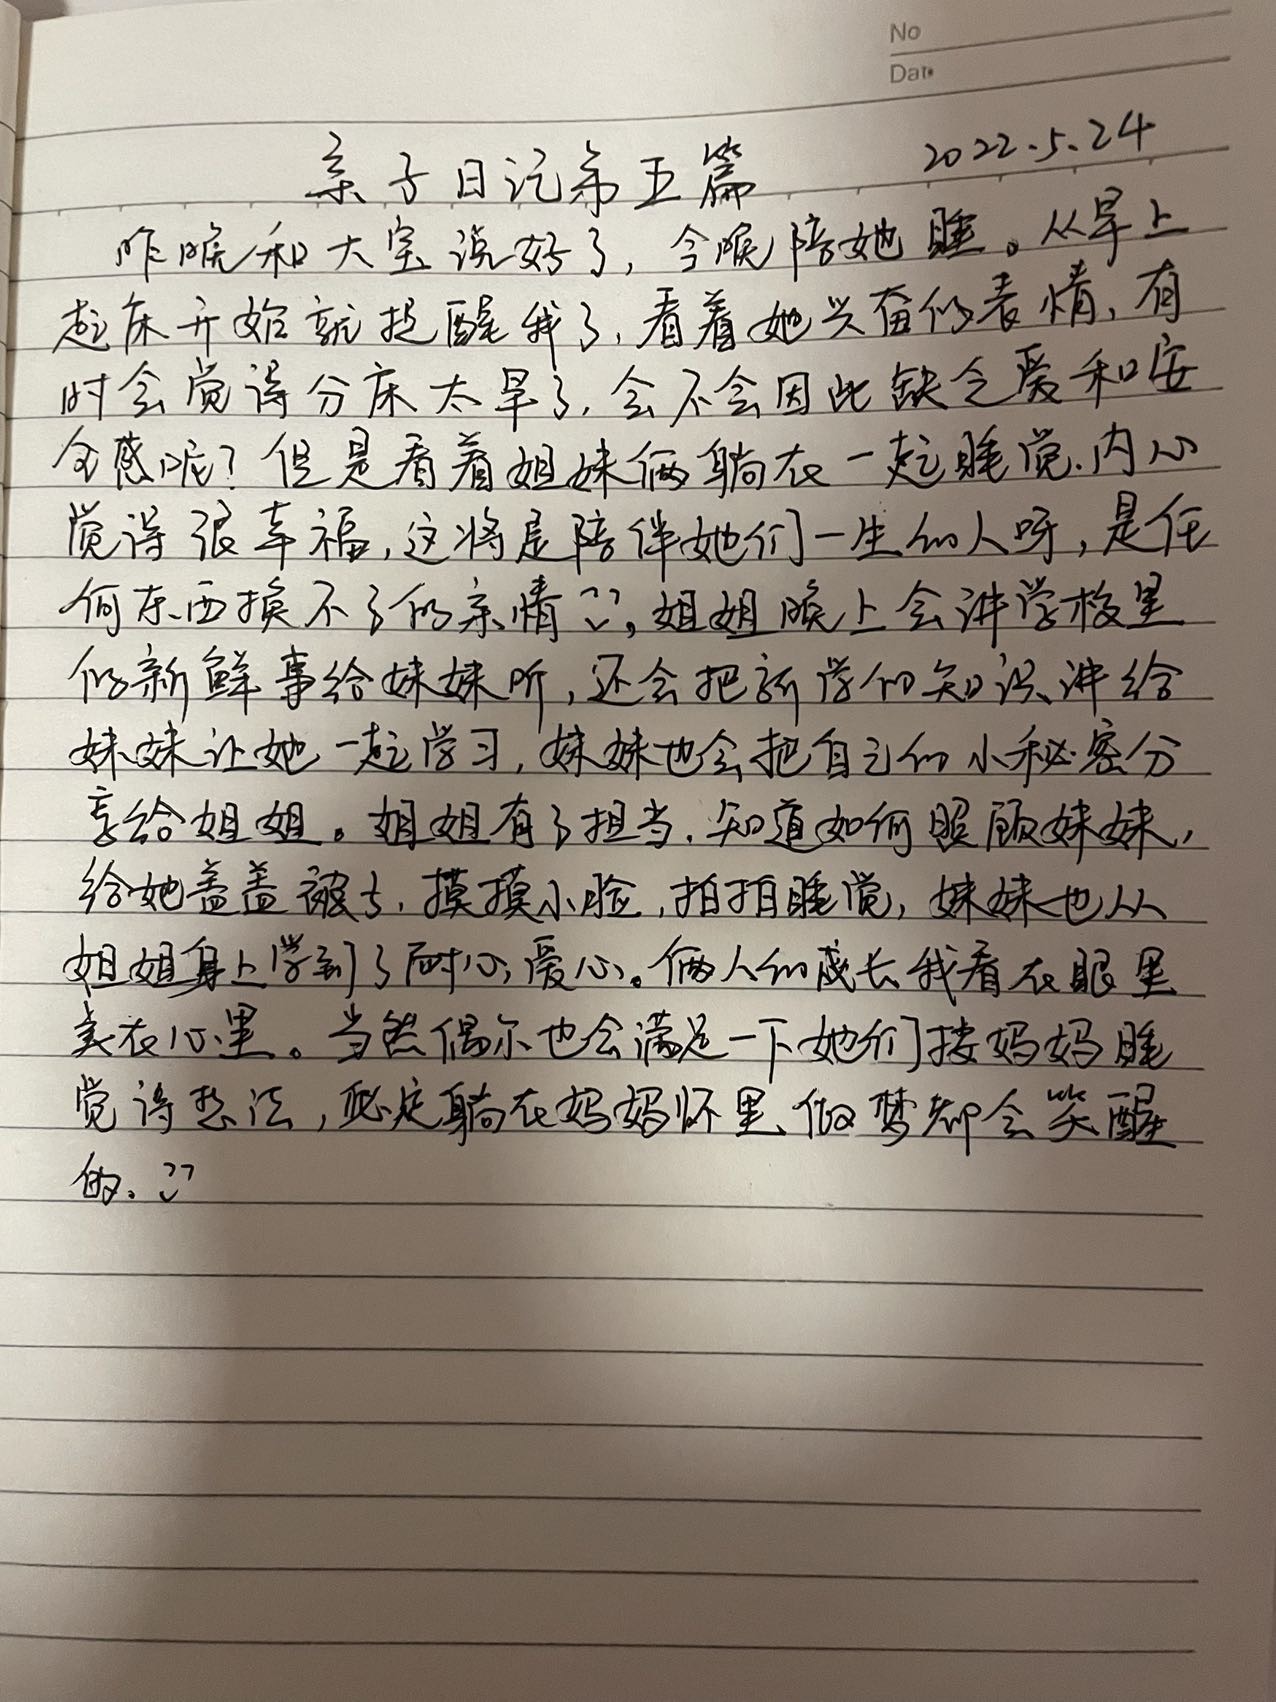 No
Date
亲子日记第五篇 2022.5.24
昨晚和大宝说好了，今晚陪她睡。从早上
起床开始就提醒我了，看着她兴奋的表情，有
时会觉得分床太早了，会不会因此缺乏爱和安
全感呢？但是看着姐妹俩躺在一起睡觉，内心
觉得很幸福，这将是陪伴她们一生的人呀，是任
何东西换不了的亲情，姐姐晚上会讲学校里
的新鲜事给妹妹听，还会把新学的知识讲给
妹妹让她一起学习，妹妹也会把自己的小秘密分
享给姐姐。姐姐有了担当，知道如何照顾妹妹，
给她盖盖被子，摸摸小脸，拍拍睡觉，妹妹也从
姐姐身上学到了耐心，爱心。俩人的成长我看在眼里
美在心里。当然偶尔也会满足一下她们搂妈妈睡
觉得想法，必定躺在妈妈怀里，做梦都会笑醒
的。